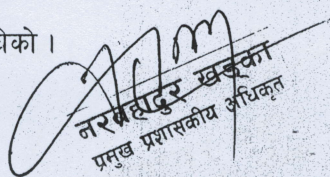 येको ।
नरबहादुर खड्का
प्रमुख प्रशासकीय अधिकृत